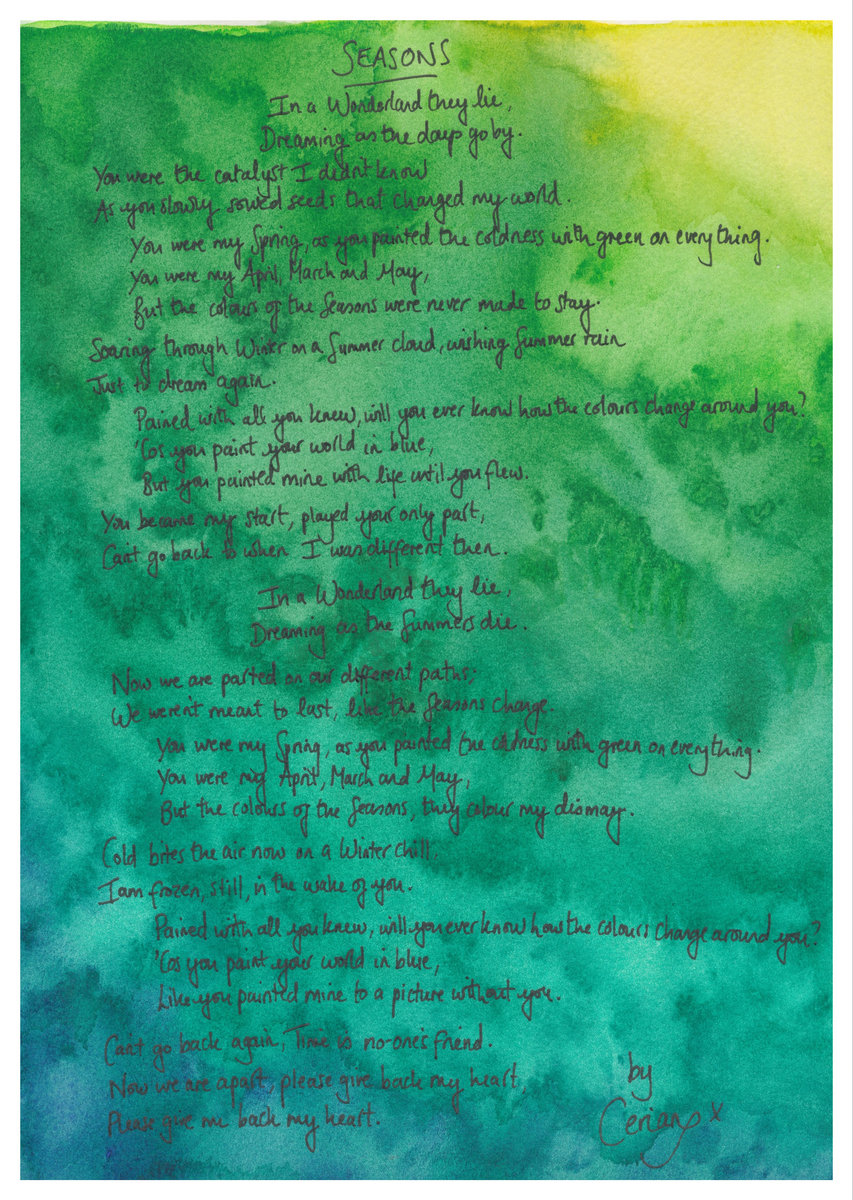 SEASONS
In a Wonderland they lie,
Dreaming as the days go by.
You were the catalyst I didn't know
As you slowly sowed seeds that changed my world.
You were my Spring, as you painted the coldness with green on everything.
You were my April, March and May,
But the colours of the Seasons were never made to stay.
Soaring through Winter on a Summer cloud, wishing Summer rain
Just to dream again.
Pained with all you knew, will you ever know how the colours change around you?
'Cos you paint your world in blue,
But you painted mine with life until you flew.
You became my start, played your only part,
Can't go back to when I was different then.
In a Wonderland they lie,
Dreaming as the Summers die.
Now we are parted on our different paths;
We weren't meant to last, like the Seasons change.
You were my Spring, as you painted the coldness with green on everything.
You were my April, March and May,
But the colours of the Seasons, they colour my dismay.
Cold bites the air now on a Winter chill,
I am frozen, still, in the wake of you.
Pained with all you knew, will you ever know how the colours change around you?
'Cos you paint your world in blue,
Like you painted mine to a picture without you.
Can't go back again, Time is no-one's friend.
Now we are apart, please give back my heart,
Please give me back my heart.
by
Cerian x